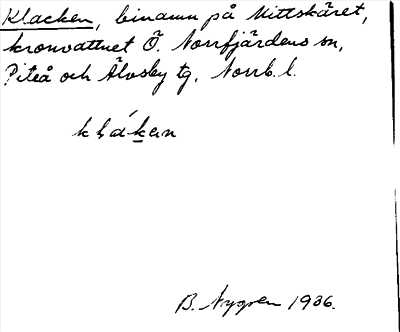 Klacken, binamn på Mittskäret,
kronvattnet Ö. Norrfjärdens sn,
Piteå och Älvsby tg, Norrb. l.
klákan
B. Nygren 1936.